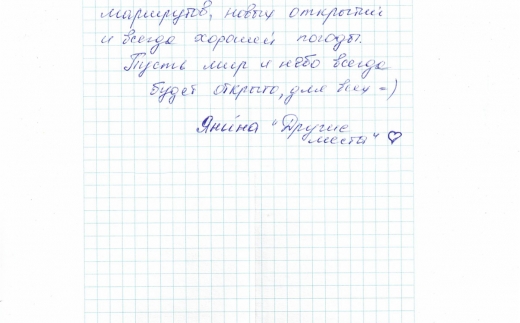 маршрутов, новых открытий
и всегда хорошей погоды.
Пусть мир и небо всегда
будет открыто, для всех =)
Янина "Другие
места" ♡